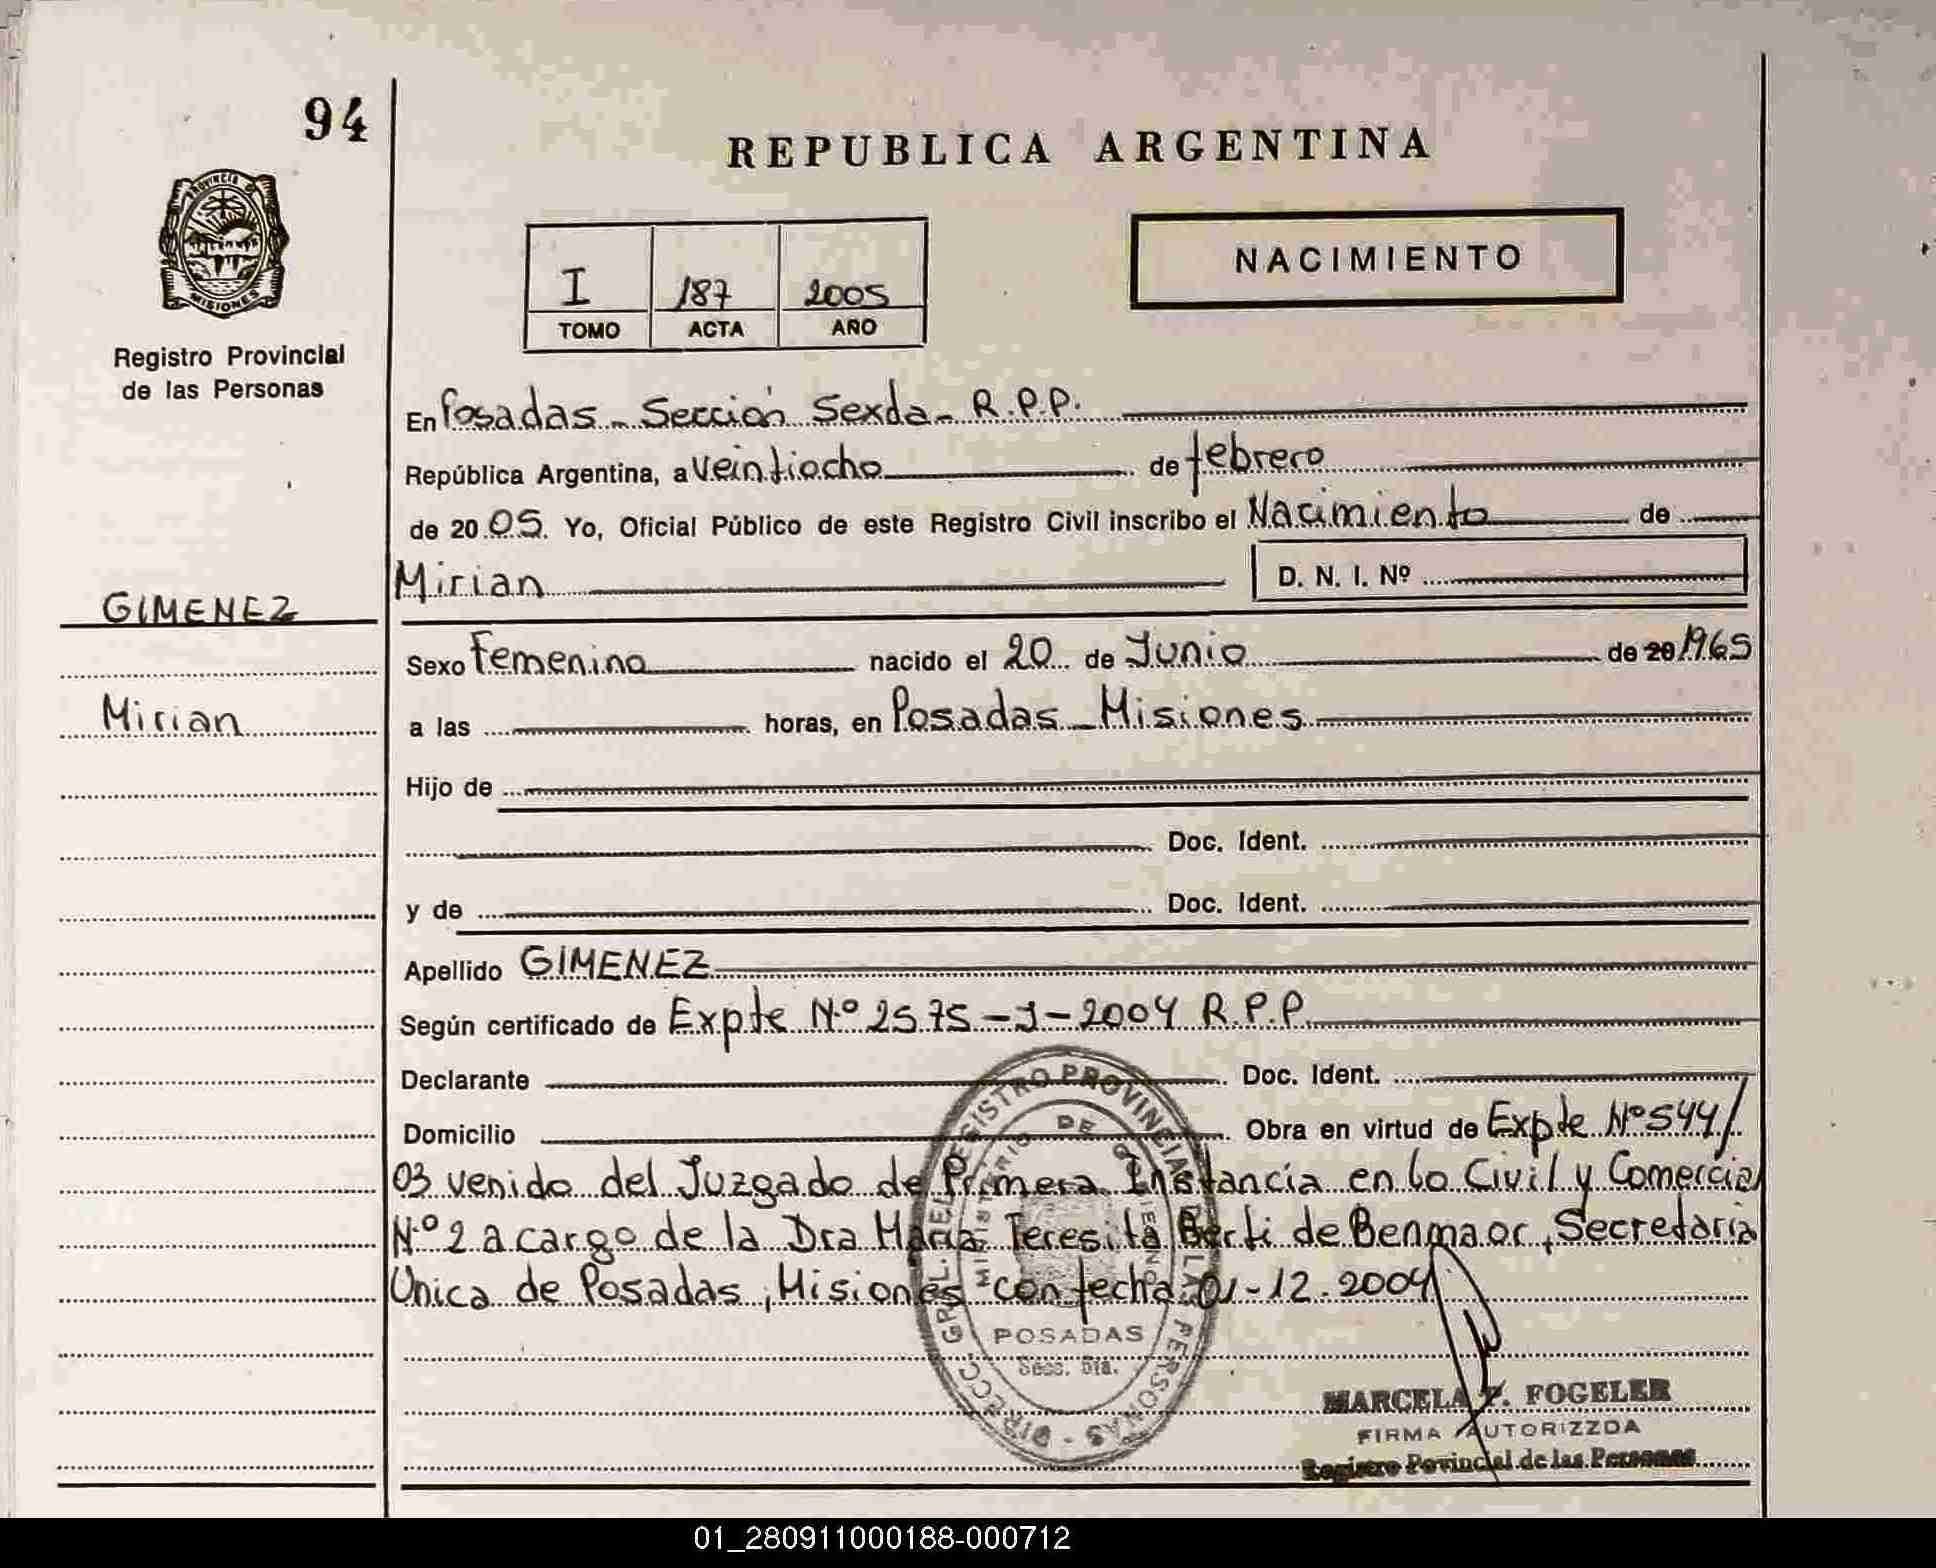 94
REPUBLICA ARGENTINA
PROVINCIA DE
MISIONES
Registro Provincial
de las Personas
I 187 2005
TOMO ACTA AÑO
NACIMIENTO
En Posadas - Sección Sexda - R.P.P.
República Argentina, a veintiocho de febrero
de 20 05. Yo, Oficial Público de este Registro Civil inscribo el Nacimiento de
Mirian D. N. I. Nº
GIMENEZ
Sexo Femenino nacido el 20 de Junio de 20 1965
Mirian
a las horas, en Posadas - Misiones
Hijo de
Doc. Ident.
y de Doc. Ident.
Apellido GIMENEZ
Según certificado de Expte Nº 2575-J-2004 R.P.P.
Declarante Doc. Ident.
Domicilio Obra en virtud de Expte Nº 544/
03 venido del Juzgado de Primera Instancia en lo Civil y Comercial
Nº 2 a cargo de la Dra Maria Teresita Berti de Benmaor, Secretaria
Unica de Posadas, Misiones con fecha 01-12-2004
DIRECC. GRAL. DEL REGISTRO PROVINCIAL DE LAS PERSONAS
MINISTERIO DE GOBIERNO
POSADAS
Secc. 6ta.
MARCELA F. FOGELER
FIRMA AUTORIZZDA
Registro Povincial de las Personas
01_280911000188-000712